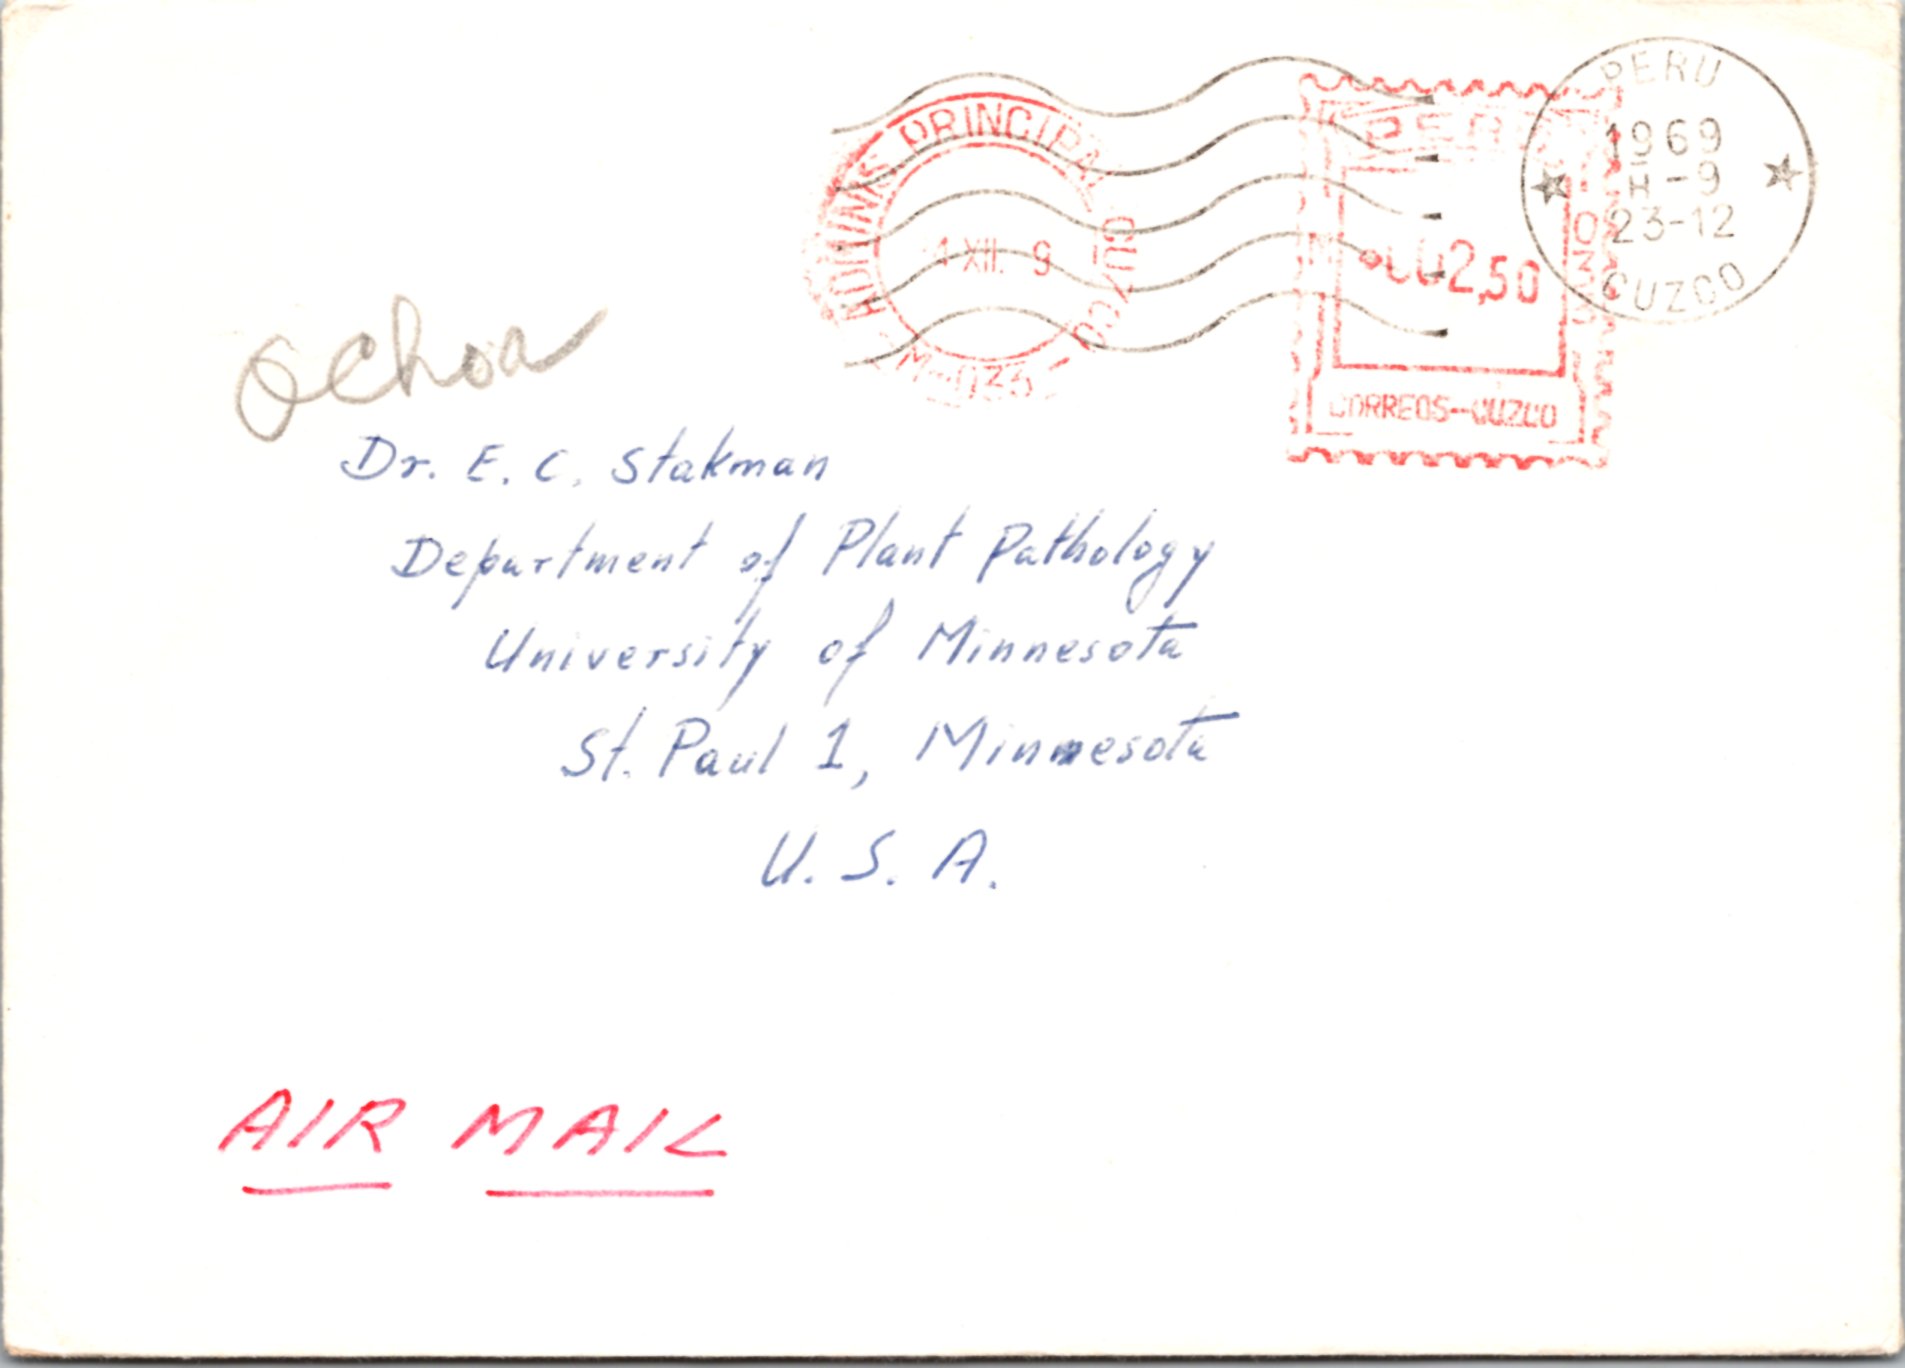 PERU
1969
H-9
23-12
CUZCO
PRINCIPAL CUZCO
1 XII. 9
M-033
2,50
CORREOS-CUZCO
Ochoa
Dr. E. C. Stakman
Department of Plant Pathology
University of Minnesota
St. Paul 1, Minnesota
U. S. A.
AIR MAIL